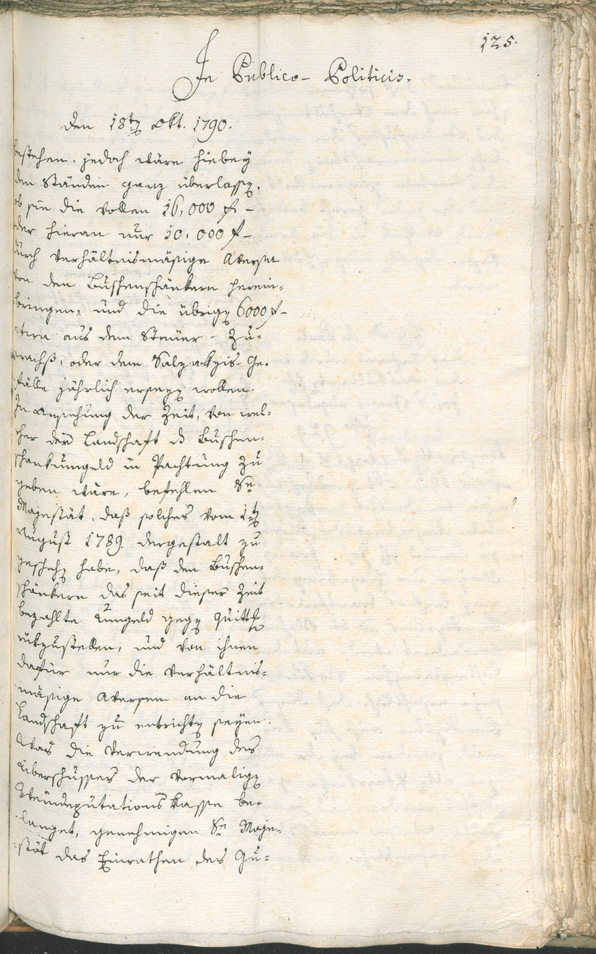 125.
In Publico-Politicis.
Den 18ten Okt. 1790.
bestehen, jedoch wäre hiebey
den Ständen ganz überlassen,
ob sie die vollen 16,000 f
oder hieran nur 10,000 f
durch verhältnismäsige Aversa
von den Buschenschänkern herein-
bringen, und die übrigen 6000 f
aus dem Steuer-Zu-
wachs, oder dem Salzaufschlags Ge-
fälle jährlich ersezen wollen.
In Ansehung der Zeit, von wel-
cher der Landschaft das Buschen-
schankumgeld in Pachtung zu
geben wäre, befehlen Se
Majestät, daß solches vom 1ten
August 1789. dergestalt zu
geschehen habe, daß den Buschen-
schänkern das seit dieser Zeit
bezahlte Umgeld gegen Quittung
rükzustellen, und von ihnen
dafür nur die verhältnis-
mäsige Aversen an die
Landschaft zu entrichten seyen.
Was die Verwendung des
Überschusses der vormaligen
Weindeputationskasse be-
langet, genehmigen Se Maje-
stät das Einrathen des Gu-